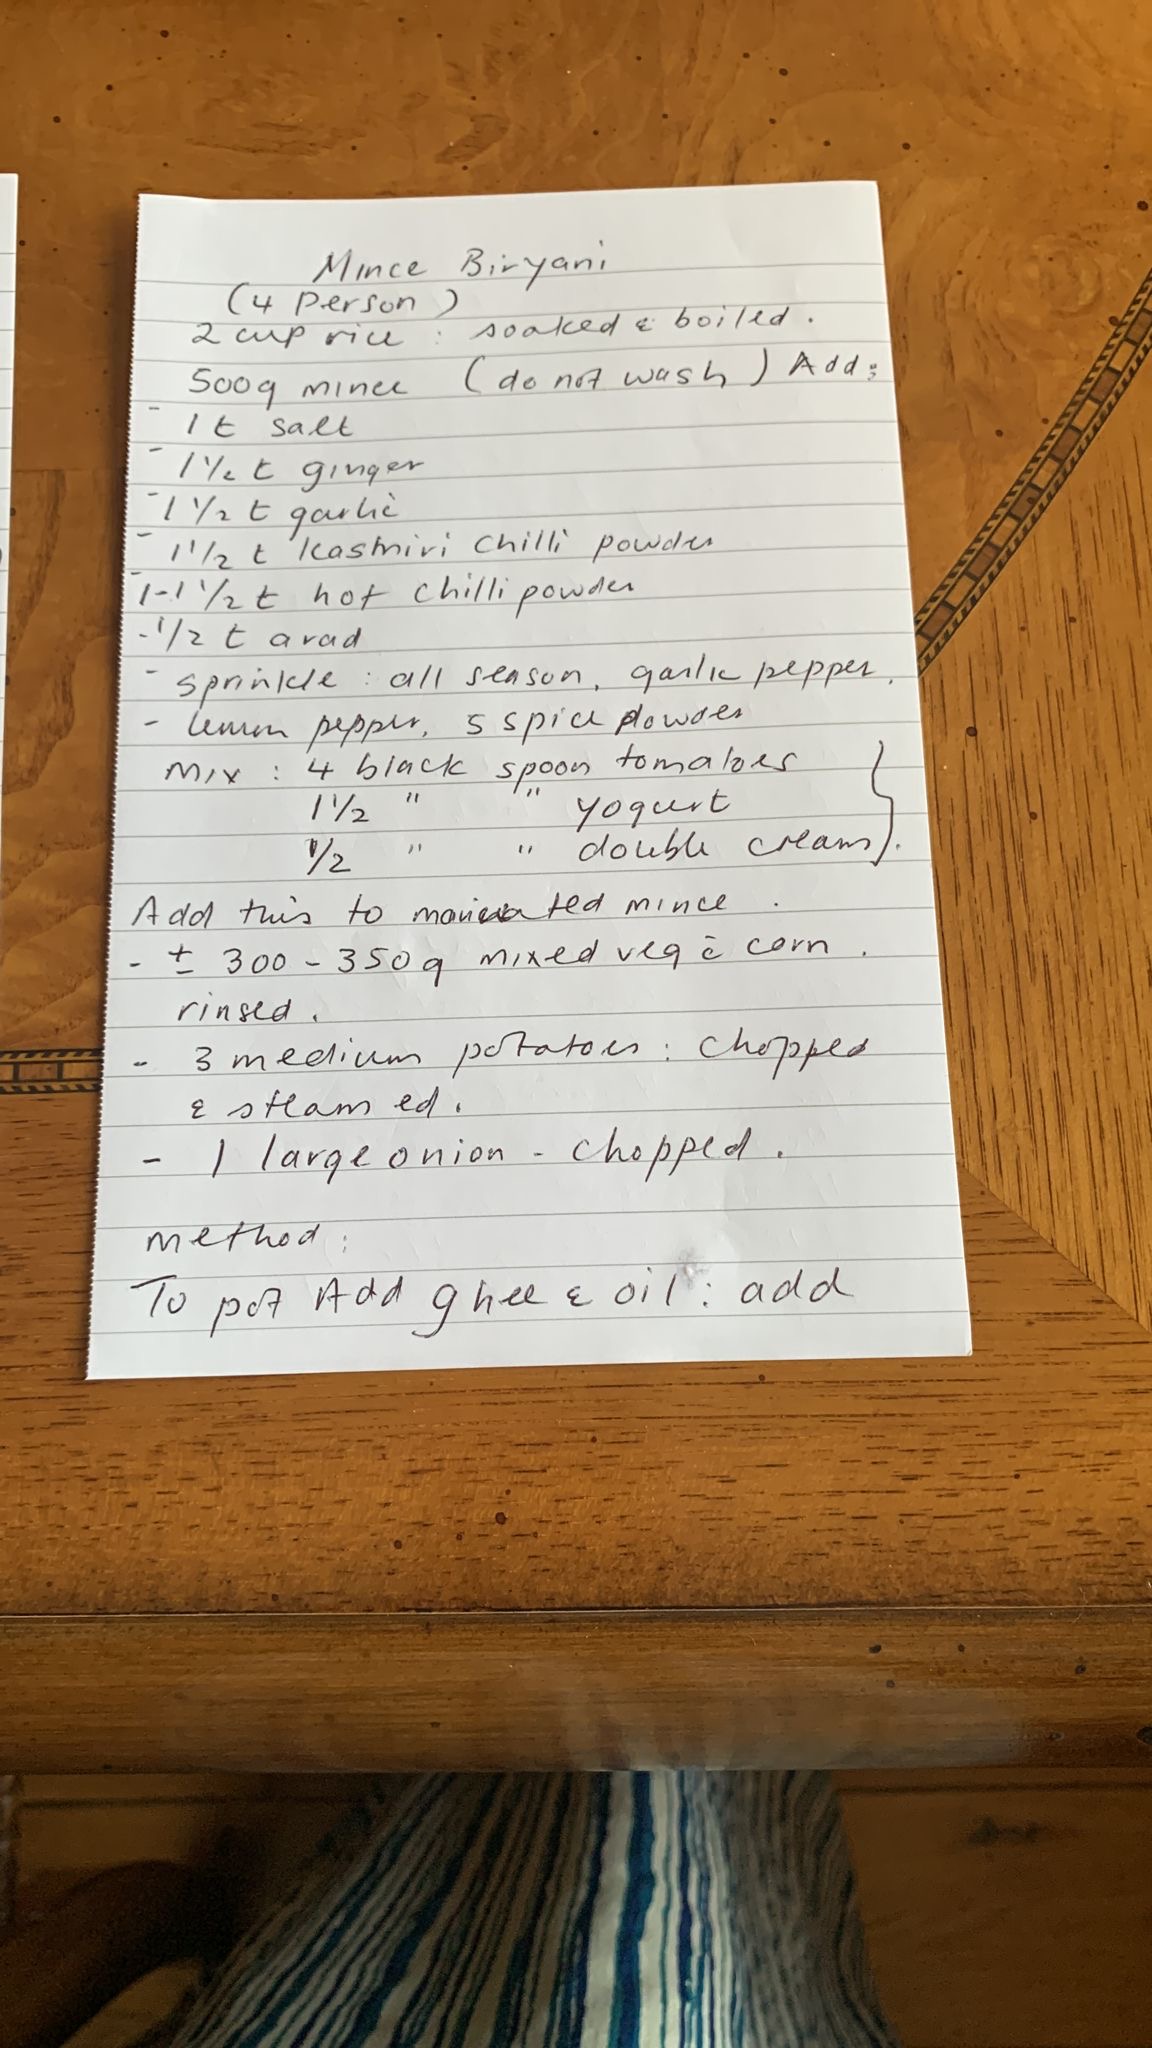 Mince Biryani
(4 Person)
2 cup rice : soaked & boiled.
500g mince (do not wash) Add:
- 1 t salt
- 1 1/2 t ginger
- 1 1/2 t garlic
- 1 1/2 t Kashmiri Chilli powder
- 1-1 1/2 t hot chilli powder
- 1/2 t arad
- sprinkle : all season, garlic pepper,
- lemon pepper, 5 spice powder
Mix : 4 black spoon tomatoes
1 1/2 " " yogurt
1/2 " " double cream }.
Add this to marinated mince.
- ± 300 - 350g mixed veg c̄ corn.
rinsed.
- 3 medium potatoes : chopped
& steamed.
- 1 large onion - chopped.
method :
To pot Add ghee & oil : add